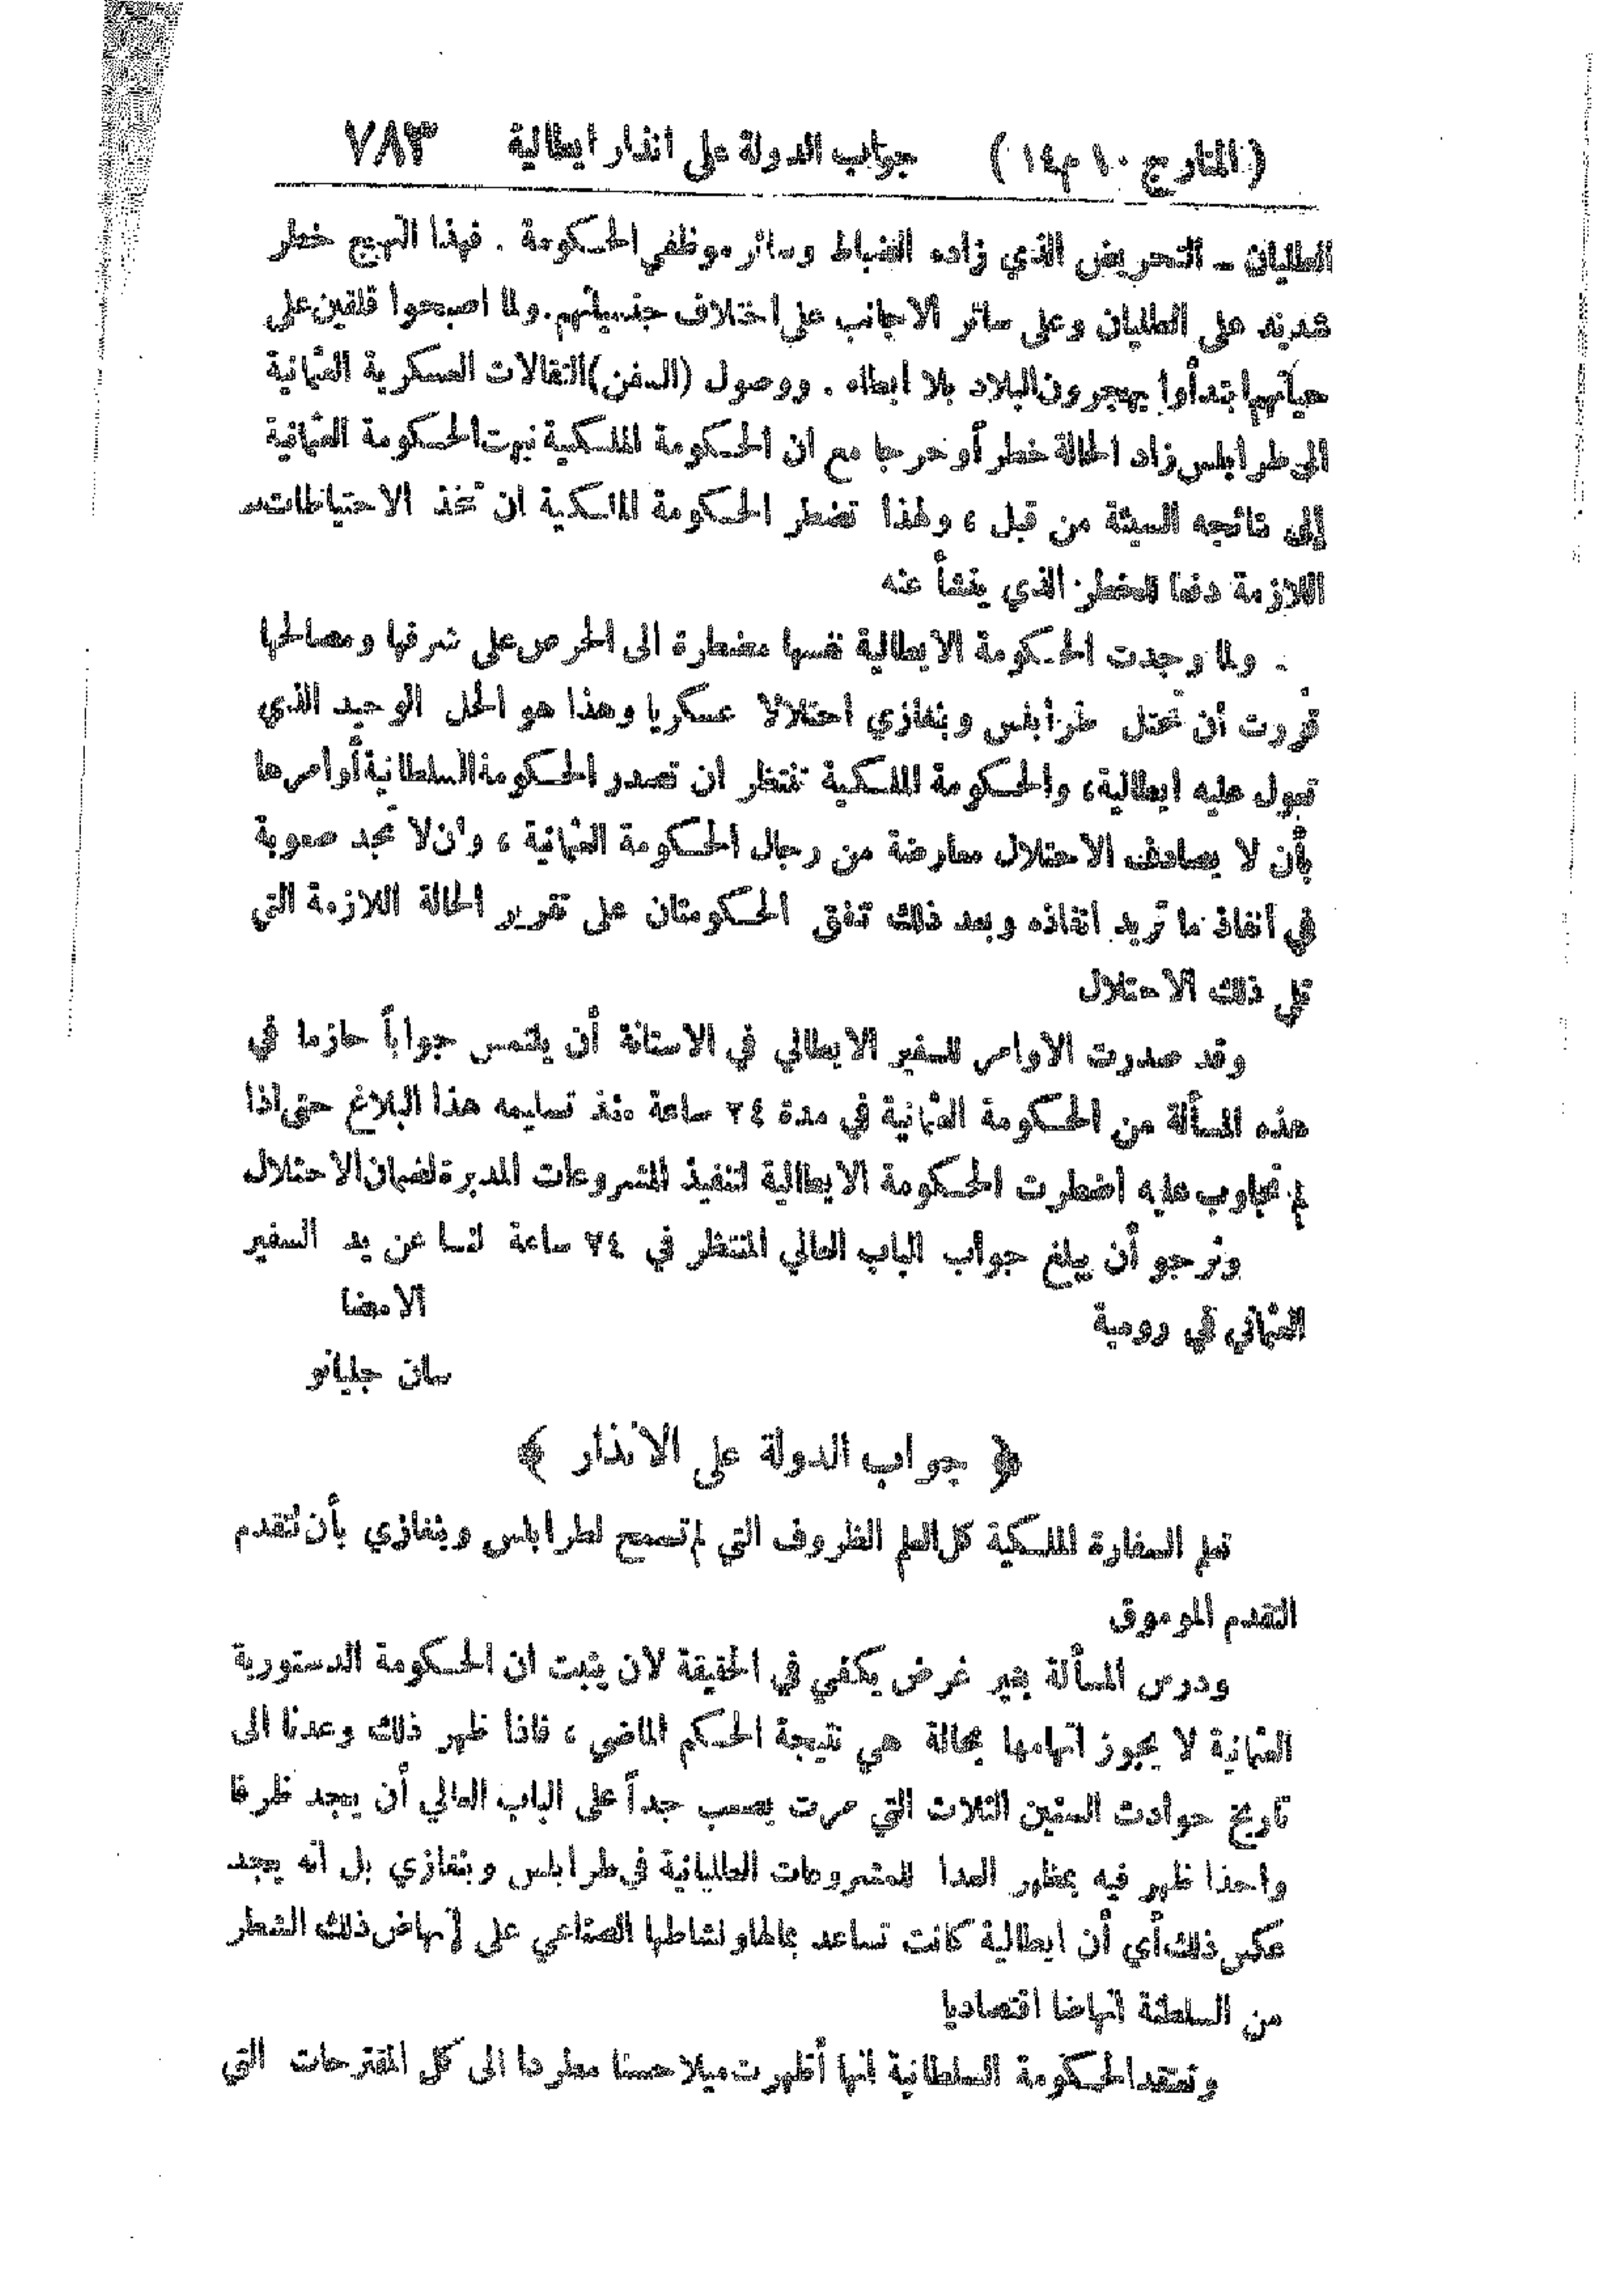 ( المنار ج ١٠ م ١٤ ) جواب الدولة على انذار ايطالية ٧٨٣
الطليان ــ التحريض الذي زاده الضباط وسائر موظفي الحكومة . فهذا التهيج خطر
شديد على الطليان وعلى سائر الاجانب على اختلاف جنسياتهم . ولما اصبحوا قلقين على
حياتهم ابتدأوا يهجرون البلاد بلا ابطاء . ووصول ( السفن ) النقالات العسكرية العثمانية
الى طرابلس زاد الحالة خطراً وحرجا مع ان الحكومة الملكية نبهت الحكومة العثمانية
إلى نتائجه السيئة من قبل ، ولهذا تضطر الحكومة الملكية ان تتخذ الاحتياطات
اللازمة دفعا للخطر الذي ينشأ عنه
ولما وجدت الحكومة الايطالية نفسها مضطرة الى الحرص على شرفها ومصالحها
قررت أن تحتل طرابلس وبنغازي احتلالا عسكريا وهذا هو الحل الوحيد الذي
تعول عليه ايطالية ، والحكومة الملكية تنتظر ان تصدر الحكومة السلطانية أوامرها
بأن لا يصادف الاحتلال معارضة من رجال الحكومة العثمانية ، وان لا تجد صعوبة
في انفاذ ما تريد انفاذه وبعد ذلك تتفق الحكومتان على تقرير الحالة اللازمة التي
تلي ذلك الاحتلال
وقد صدرت الاوامر للسفير الايطالي في الاستانة أن يلتمس جواباً حازما في
هذه المسألة من الحكومة العثمانية في مدة ٢٤ ساعة منذ تسليمه هذا البلاغ حتى اذا
لم تجاوب عليه اضطرت الحكومة الايطالية لتنفيذ المشروعات المدبرة لضمان الاحتلال
ونرجو أن يبلغ جواب الباب العالي المنتظر في ٢٤ ساعة لنا عن يد السفير
العثماني في رومية الامضا
سان جليانو
﴿ جواب الدولة على الانذار ﴾
تعلم السفارة الملكية كل العلم الظروف التي لم تسمح لطرابلس وبنغازي بأن تتقدم
التقدم الموموق
ودرس المسألة بغير غرض يكفي في الحقيقة لان يثبت ان الحكومة الدستورية
العثمانية لا يجوز اتهامها بحالة هي نتيجة الحكم الماضي ، فاذا ظهر ذلك وعدنا الى
تاريخ حوادث السنين الثلاث التي مرت يصعب جداً على الباب العالي أن يجد ظرفا
واحدا ظهر فيه بمظهر العدا للمشروعات الطليانية في طرابلس وبنغازي بل انه يجد
عكس ذلك أي أن ايطالية كانت تساعد بمالها ونشاطها الصناعي على إنهاض ذلك الشطر
من السلطنة انهاضا اقتصاديا
وتعتقد الحكومة السلطانية انها أظهرت ميلا حسنا مطردا الى كل المقترحات التي